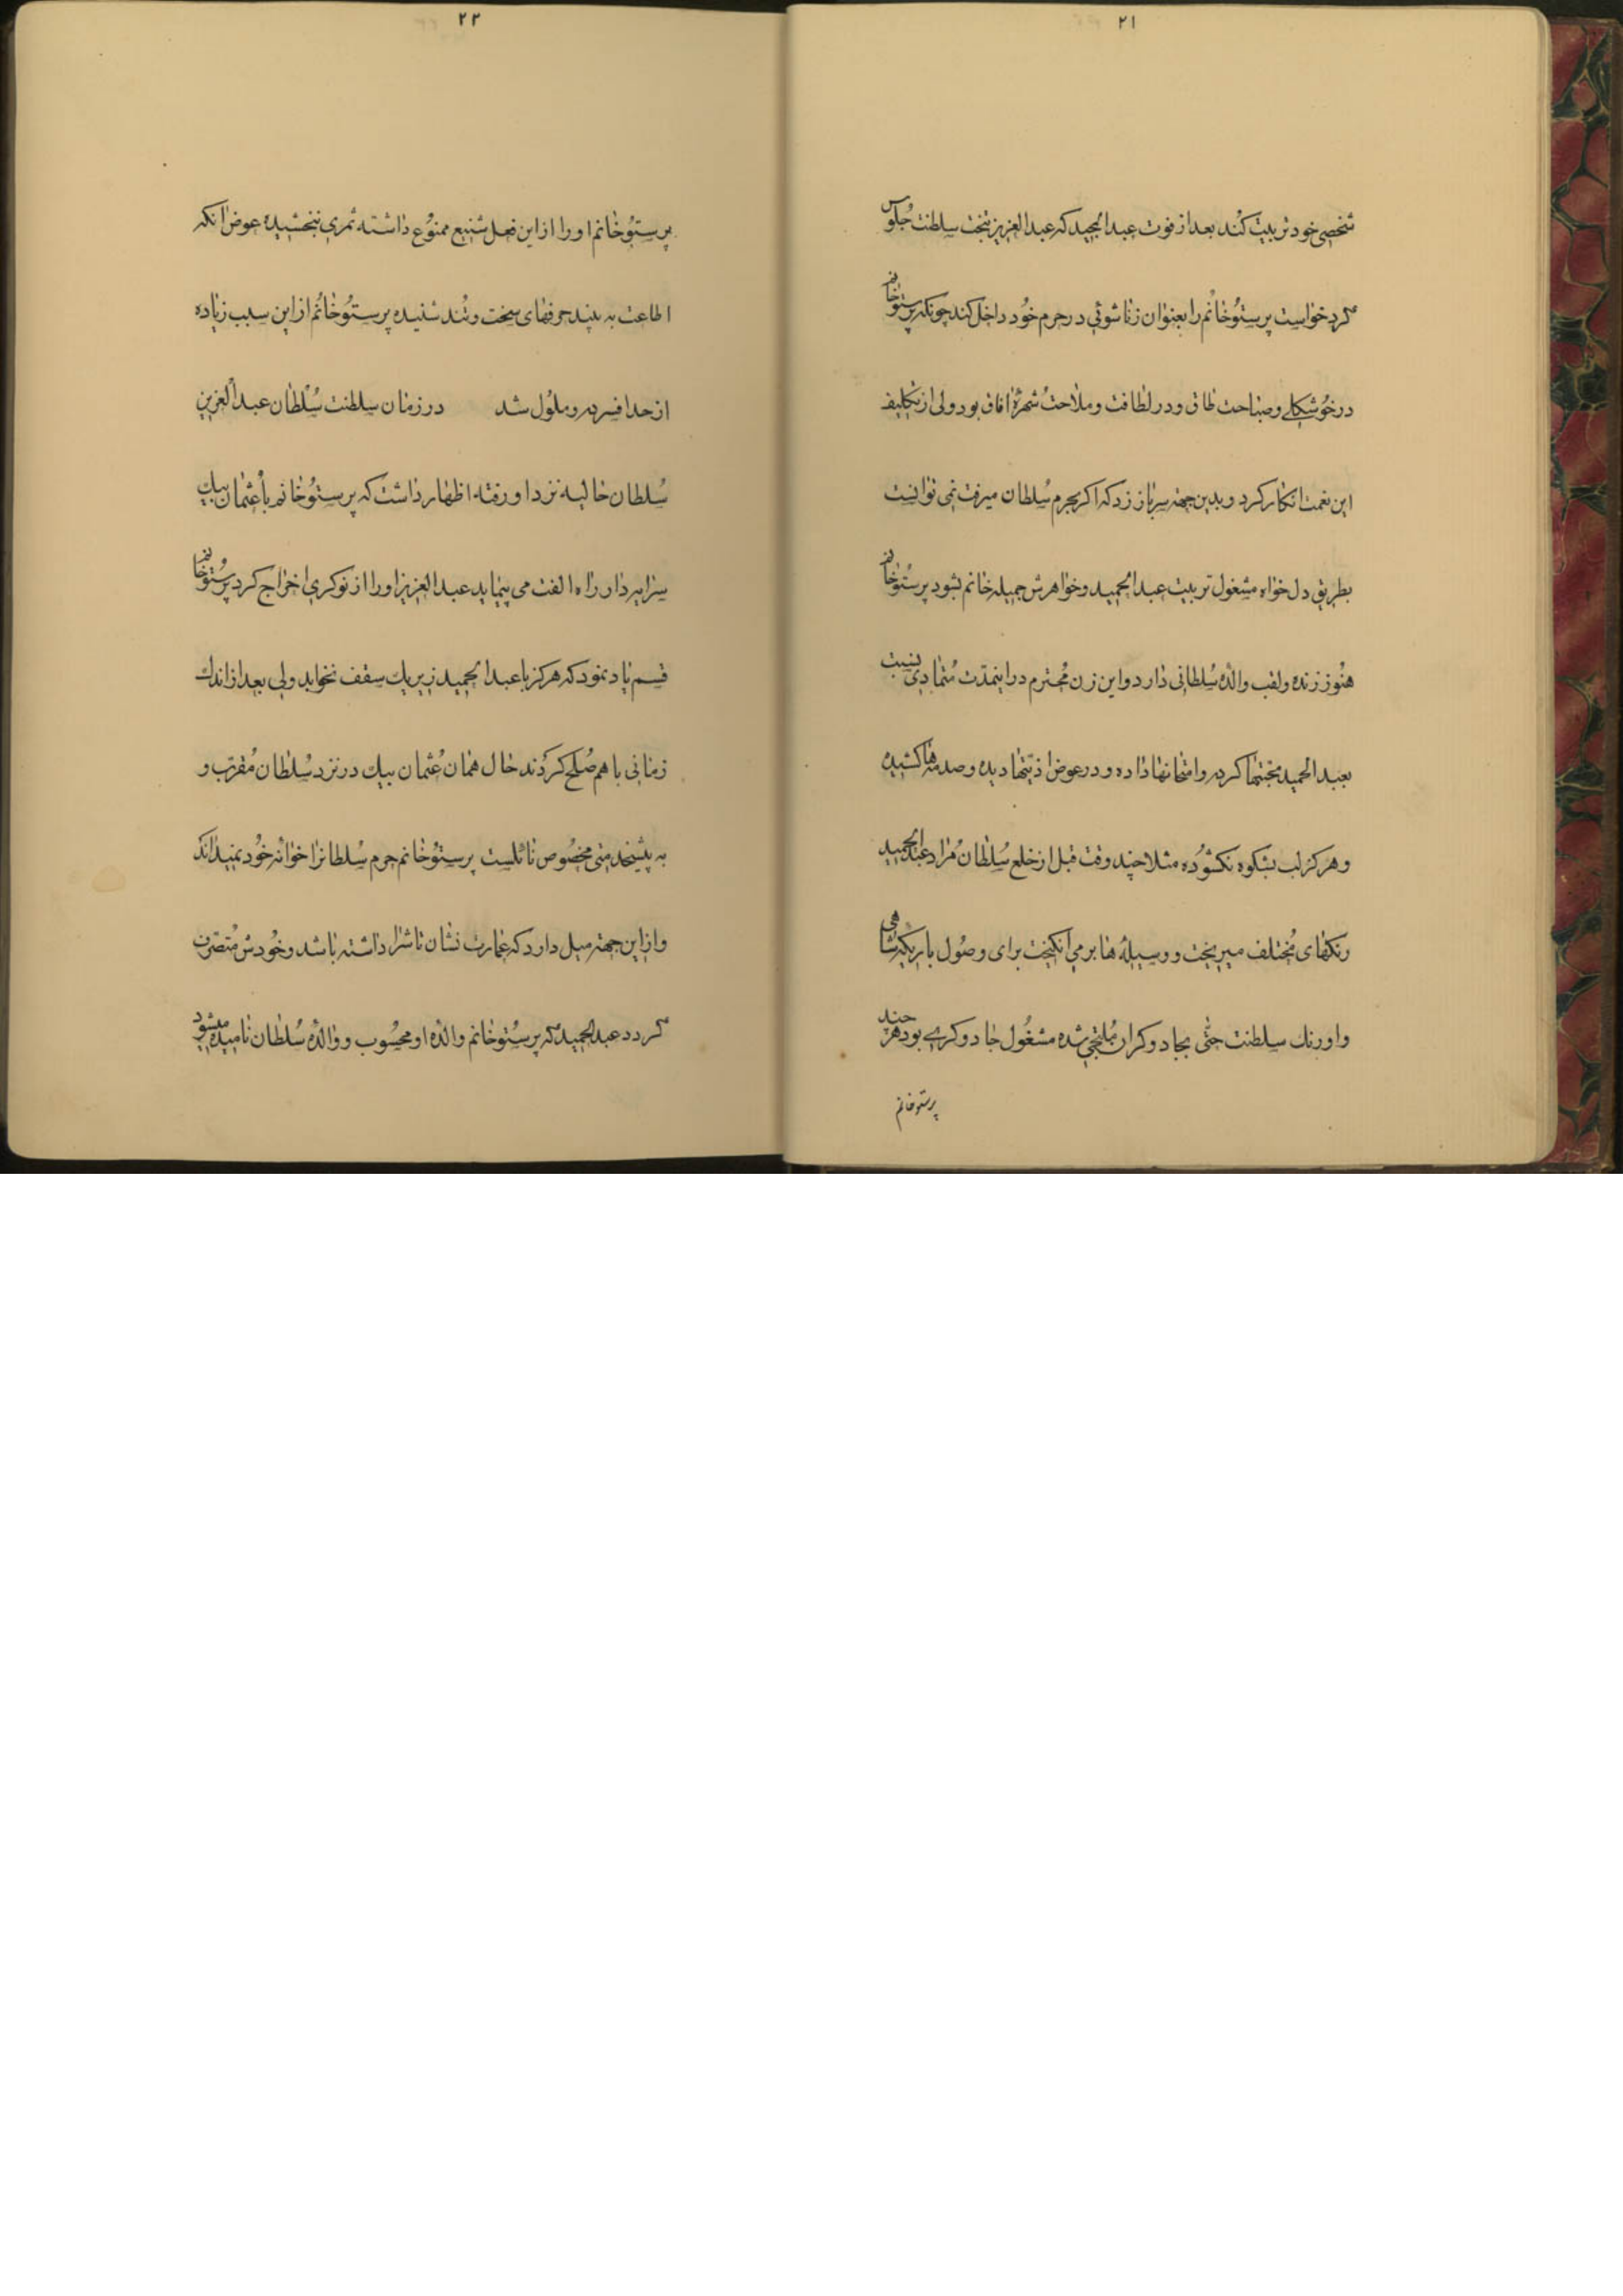 ۲۱
شخصی خود تربیت کند بعد از فوت عبدالمجید که عبدالعزیز بتخت سلطنت جلوس
کرد خواست پرستوخانم را بعنوان زناشوئی در حرم خود داخل کند چونکه پرستوخانم
در خوشکلی و صباحت طاق و در لطافت و ملاحت شهرهٔ افاق بود ولی از تکلیف
این نعمت انکار کرد و بدین جهة سر باز زد که اکر بحرم سلطان میرفت نمی توانست
بطریق دل خواه مشغول تربیت عبدالحمید و خواهرش جمیله خانم بشود پرستوخانم
هنوز زنده و لقب والدهٔ سلطانی دارد و این زن محترم در اینمدت متمادی بنسبت
بعبدالحمید محبتها کرده و امتحانها داده و در عوض اذیتها دیده و صدمه ها کشیده
و هرکز لب بشکوه نکشوده مثلا چند وقت قبل از خلع سلطان مراد عبدالحمید
رنکهای مختلف میریخت و وسیله ها برمی انکیخت برای وصول باریکه شاهی
و اورنك سلطنت حتی بجادوکران ملتجی شده مشغول جادوکری بود هرچند
پرستوخانم
۲۲
پرستوخانم او را از این فعل شنیع ممنوع داشته ثمری نبخشیده عوض انکه
اطاعت به پند حرفهای سخت و تند شنیده پرستوخانم از این سبب زیاده
از حد افسرده و ملول شد در زمان سلطنت سلطان عبدالعزیز
سلطان خالیه نزد او رفته اظهار داشت که پرستوخانم با عثمان بیك
سرایدار راه الفت می پیماید عبدالعزیز او را از نوکری اخراج کرد پرستوخانم
قسم یاد نمود که هرکز با عبدالحمید زیر یك سقف نخوابد ولی بعد از اندك
زمانی با هم صلح کردند حال همان عثمان بیك در نزد سلطان مقرب و
به پیشخدمتی مخصوص نائلست پرستوخانم حرم سلطانرا خوانه خود نمیداند
و از این جهة میل دارد که عمارت نشان تاشرا داشته باشد و خودش متصرف
کردد عبدالحمید که پرستوخانم والدهٔ او محسوب و والدهٔ سلطان نامیده میشود